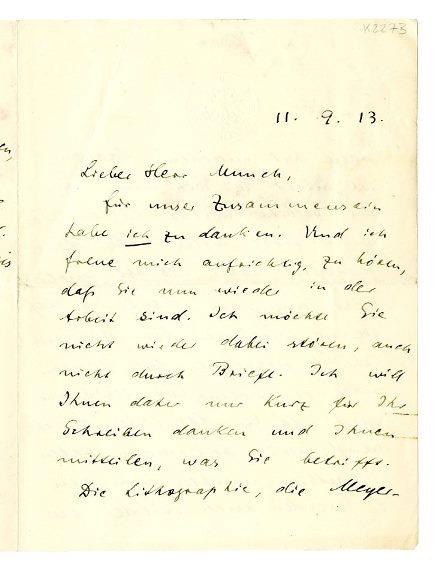 K2273
11. 9. 13.
Lieber Herr Munch,
für unser Zusammensein
habe ich zu danken. Und ich
freue mich aufrichtig, zu hören,
daß Sie nun wieder in der
Arbeit sind. Ich möchte Sie
nicht wieder dabei stören, auch
nicht durch Briefe. Ich will
Ihnen daher nur kurz für Ihr
Schreiben danken und Ihnen
mitteilen, was Sie betrifft.
Die Lithographie, die Meyer-